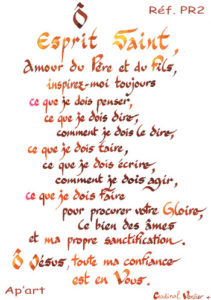 Ô
Réf. PR2
Esprit Saint,
Amour du Père et du Fils,
inspirez-moi toujours
ce que je dois penser,
ce que je dois dire,
comment je dois le dire,
ce que je dois taire,
ce que je dois écrire,
comment je dois agir,
ce que je dois faire
pour procurer votre Gloire,
le bien des âmes
et ma propre sanctification.
Ô Jésus, toute ma confiance
est en Vous.
Ap'art
Cardinal Verdier